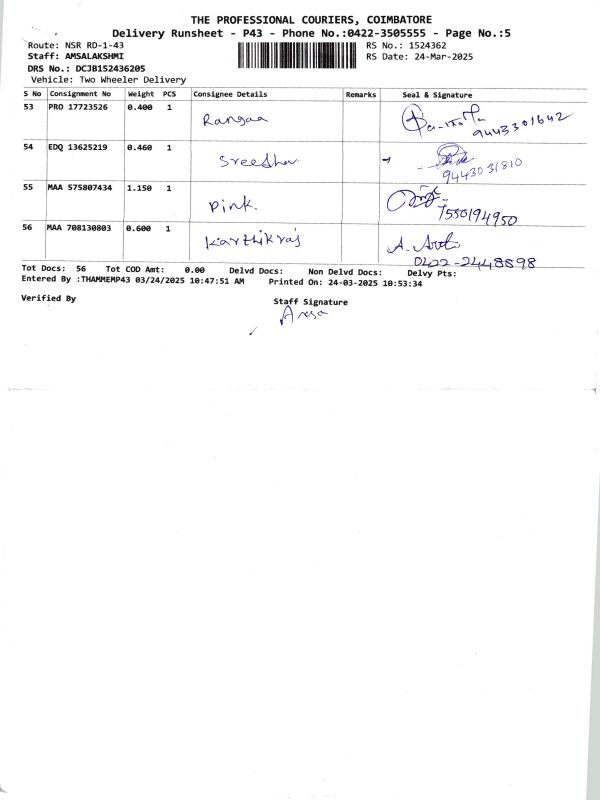 THE PROFESSIONAL COURIERS, COIMBATORE
Delivery Runsheet - P43 - Phone No.:0422-3505555 - Page No.:5
Route: NSR RD-1-43 RS No.: 1524362
Staff: AMSALAKSHMI RS Date: 24-Mar-2025
DRS No.: DCJB152436205
Vehicle: Two Wheeler Delivery
S No Consignment No Weight PCS Consignee Details Remarks Seal & Signature
53 PRO 17723526 0.400 1 Rangaa 9443301642
54 EDQ 13625219 0.460 1 Sreedhar 9443031810
55 MAA 575807434 1.150 1 Pink. 7550194950
56 MAA 708130803 0.600 1 Karthikraj 0422-2448898
Tot Docs: 56 Tot COD Amt: 0.00 Delvd Docs: Non Delvd Docs: Delvy Pts:
Entered By :THAMMEMP43 03/24/2025 10:47:51 AM Printed On: 24-03-2025 10:53:34
Verified By Staff Signature